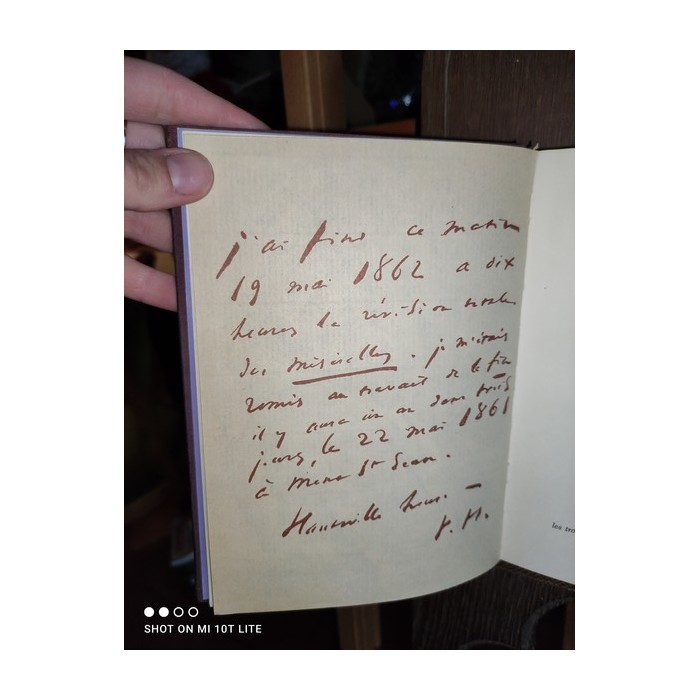 j'ai fini ce matin
19 mai 1862 a dix
heures la révision totale
des Misérables. je m'étais
remis au travail de la fin
il y aura un an dans trois
jours, le 22 mai 1861
à Mont St Jean.
Hauteville house. —
V. H.
les tro
SHOT ON MI 10T LITE